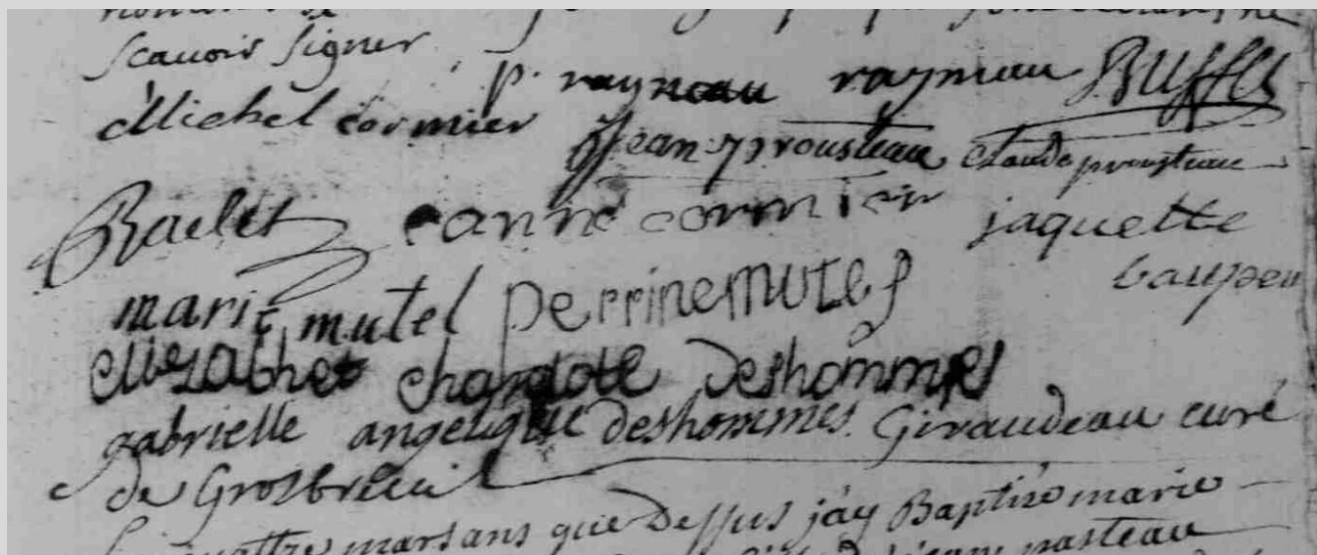 scavoir signer
p. rayneau raynau Buffet
Michel cormier
Jean prousteau Claude prousteau
Raclet eanne cormier jaquette
marie mutel perrine mutel
Elizabhet charlote Deshommes
gabrielle angelique deshommes. Giraudeau curé
de Grosbreuil
quattre mars ans que dessus j'ay Baptizé marie
pasteau